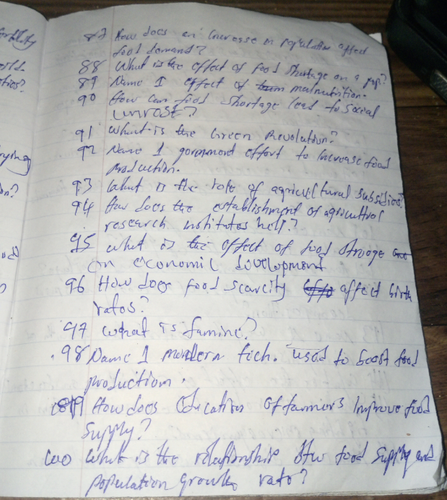 87 How does an increase in population affect
food demand?
88 What is the effect of food shortage on a pop?
89 Name 1 effect of malnutrition.
90 How can food shortage lead to social
unrest?
91 What is the Green Revolution?
92 Name 1 government effort to increase food
production.
93 What is the role of agricultural subsidies?
94 How does the establishment of agricultral
research institutes help?
95 what is the effect of food
on economic development
96 How does food scarcity affect birth
rates?
97 what is famine?
98 Name 1 mordern tech. used to boost food
production.
99 How does Education of farmers Improve food
Supply?
100 What is the relationship btw food supply and
population growth rate?